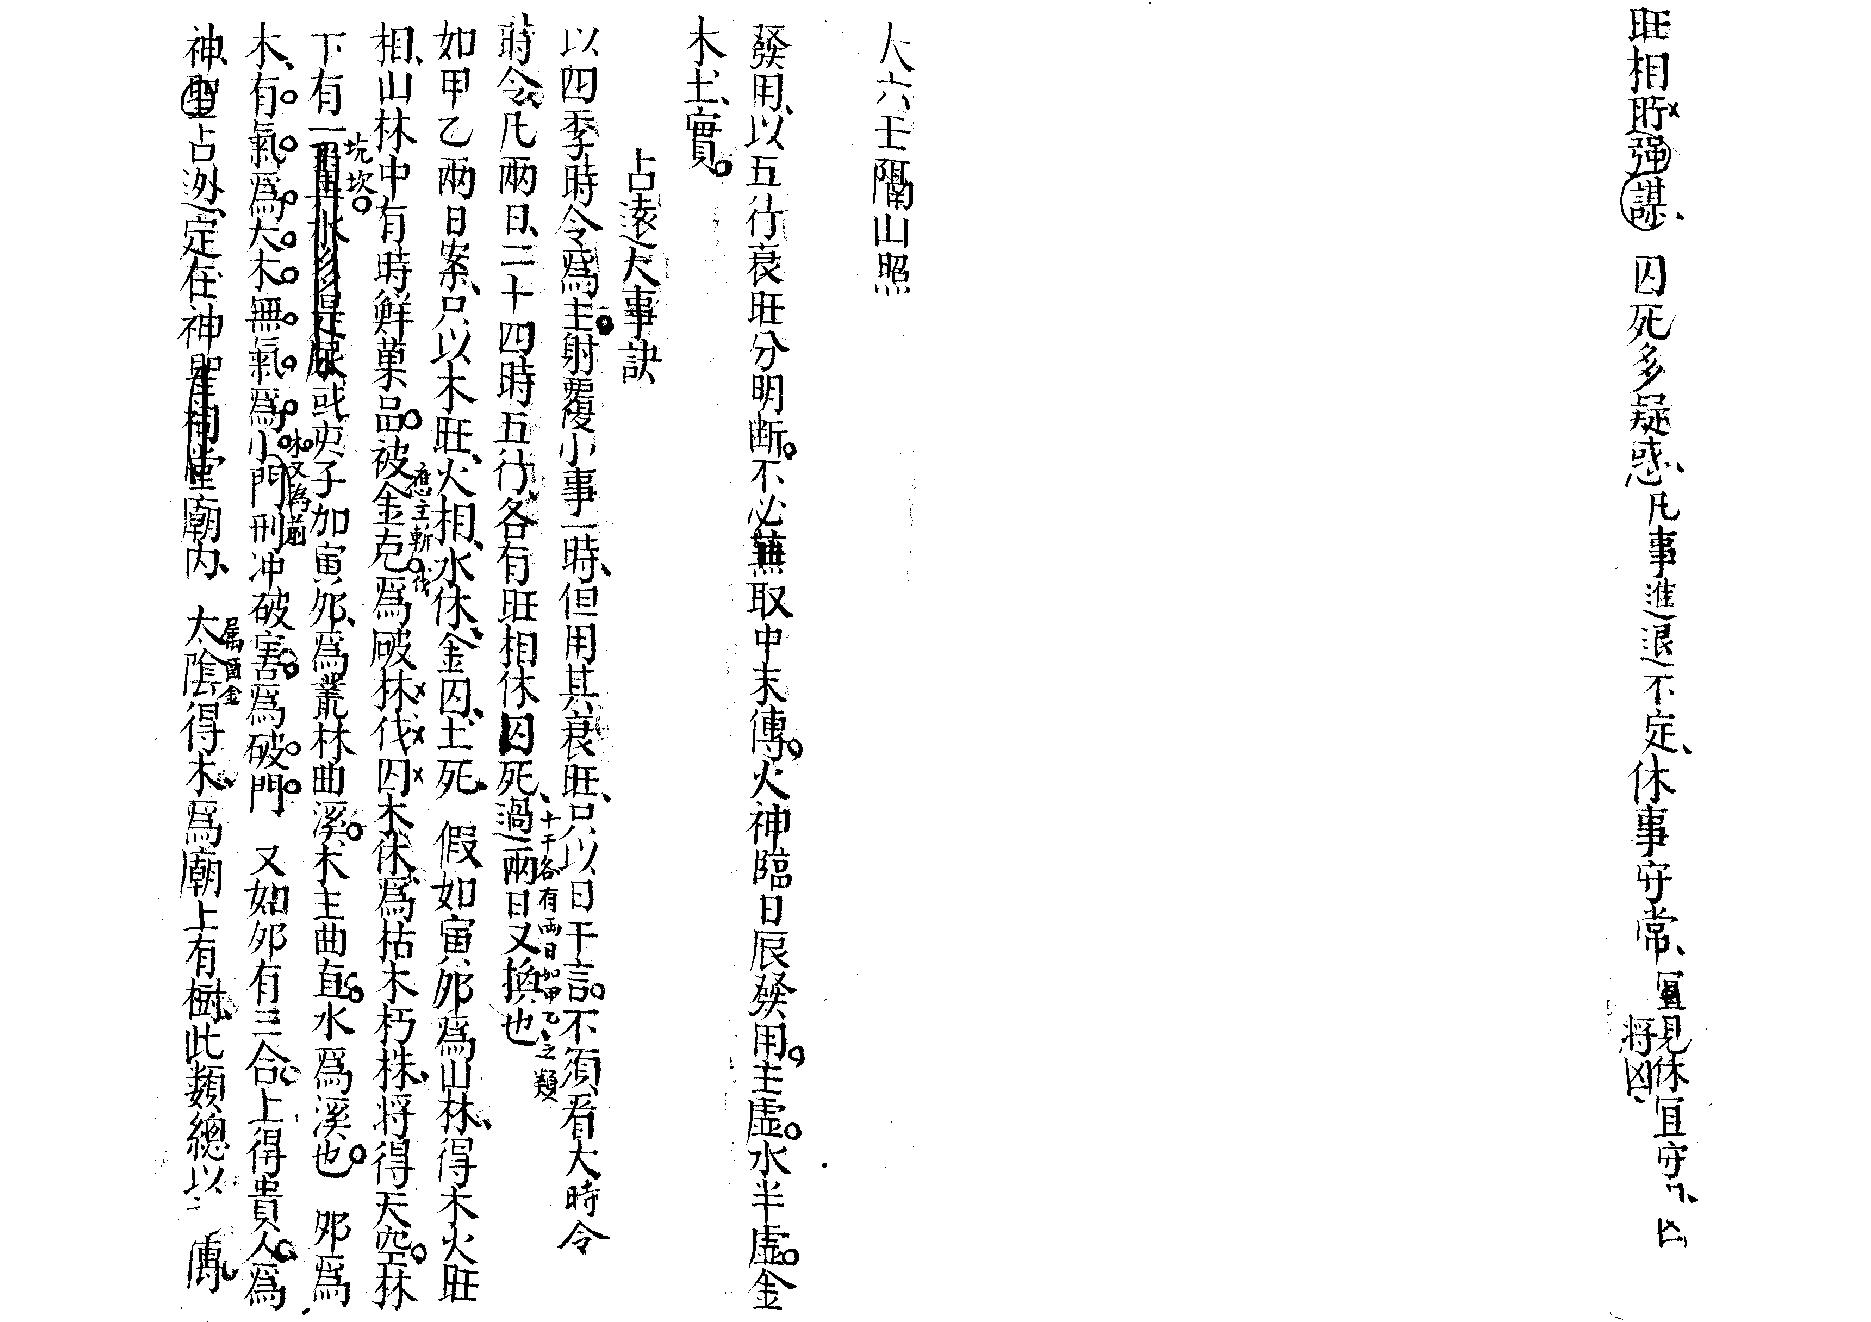 旺相時强謀、囚死多疑惑、凡事進退不定、休事守常、
見休宜守
將凶、
大六壬隔山照
發用、以五行衰旺分明斷。不必無取中末傳。火神臨日辰發用。主虛。水半虛。金
木土、實。
占遠大事訣
以四季時令爲主射覆小事一時、但用其衰旺、只以日干言。不須看大時令
時令、凡兩日、二十四時五行、各有旺相休囚死、過兩日又換也
十干各有兩日如甲乙之類
如甲乙兩日案、只以木旺、火相、水休、金囚、土死、假如寅、卯爲山林、得木火旺
相、山林中有時鮮菓品。被金克爲破林伐囚木休、爲枯木朽株、將得天空。林
應主斬伐
下有一
坑坎。
或寅子加寅卯、爲叢林曲溪。木主曲直。水爲溪也。卯爲
木、有氣爲大木無氣爲小門刑冲破害爲破門 又如卯有三合。上得貴人。爲
林又爲前
神、聖占外、定在神聖祠堂廟内、太陰得木、爲廟上有樹、此類總以
屬酉金